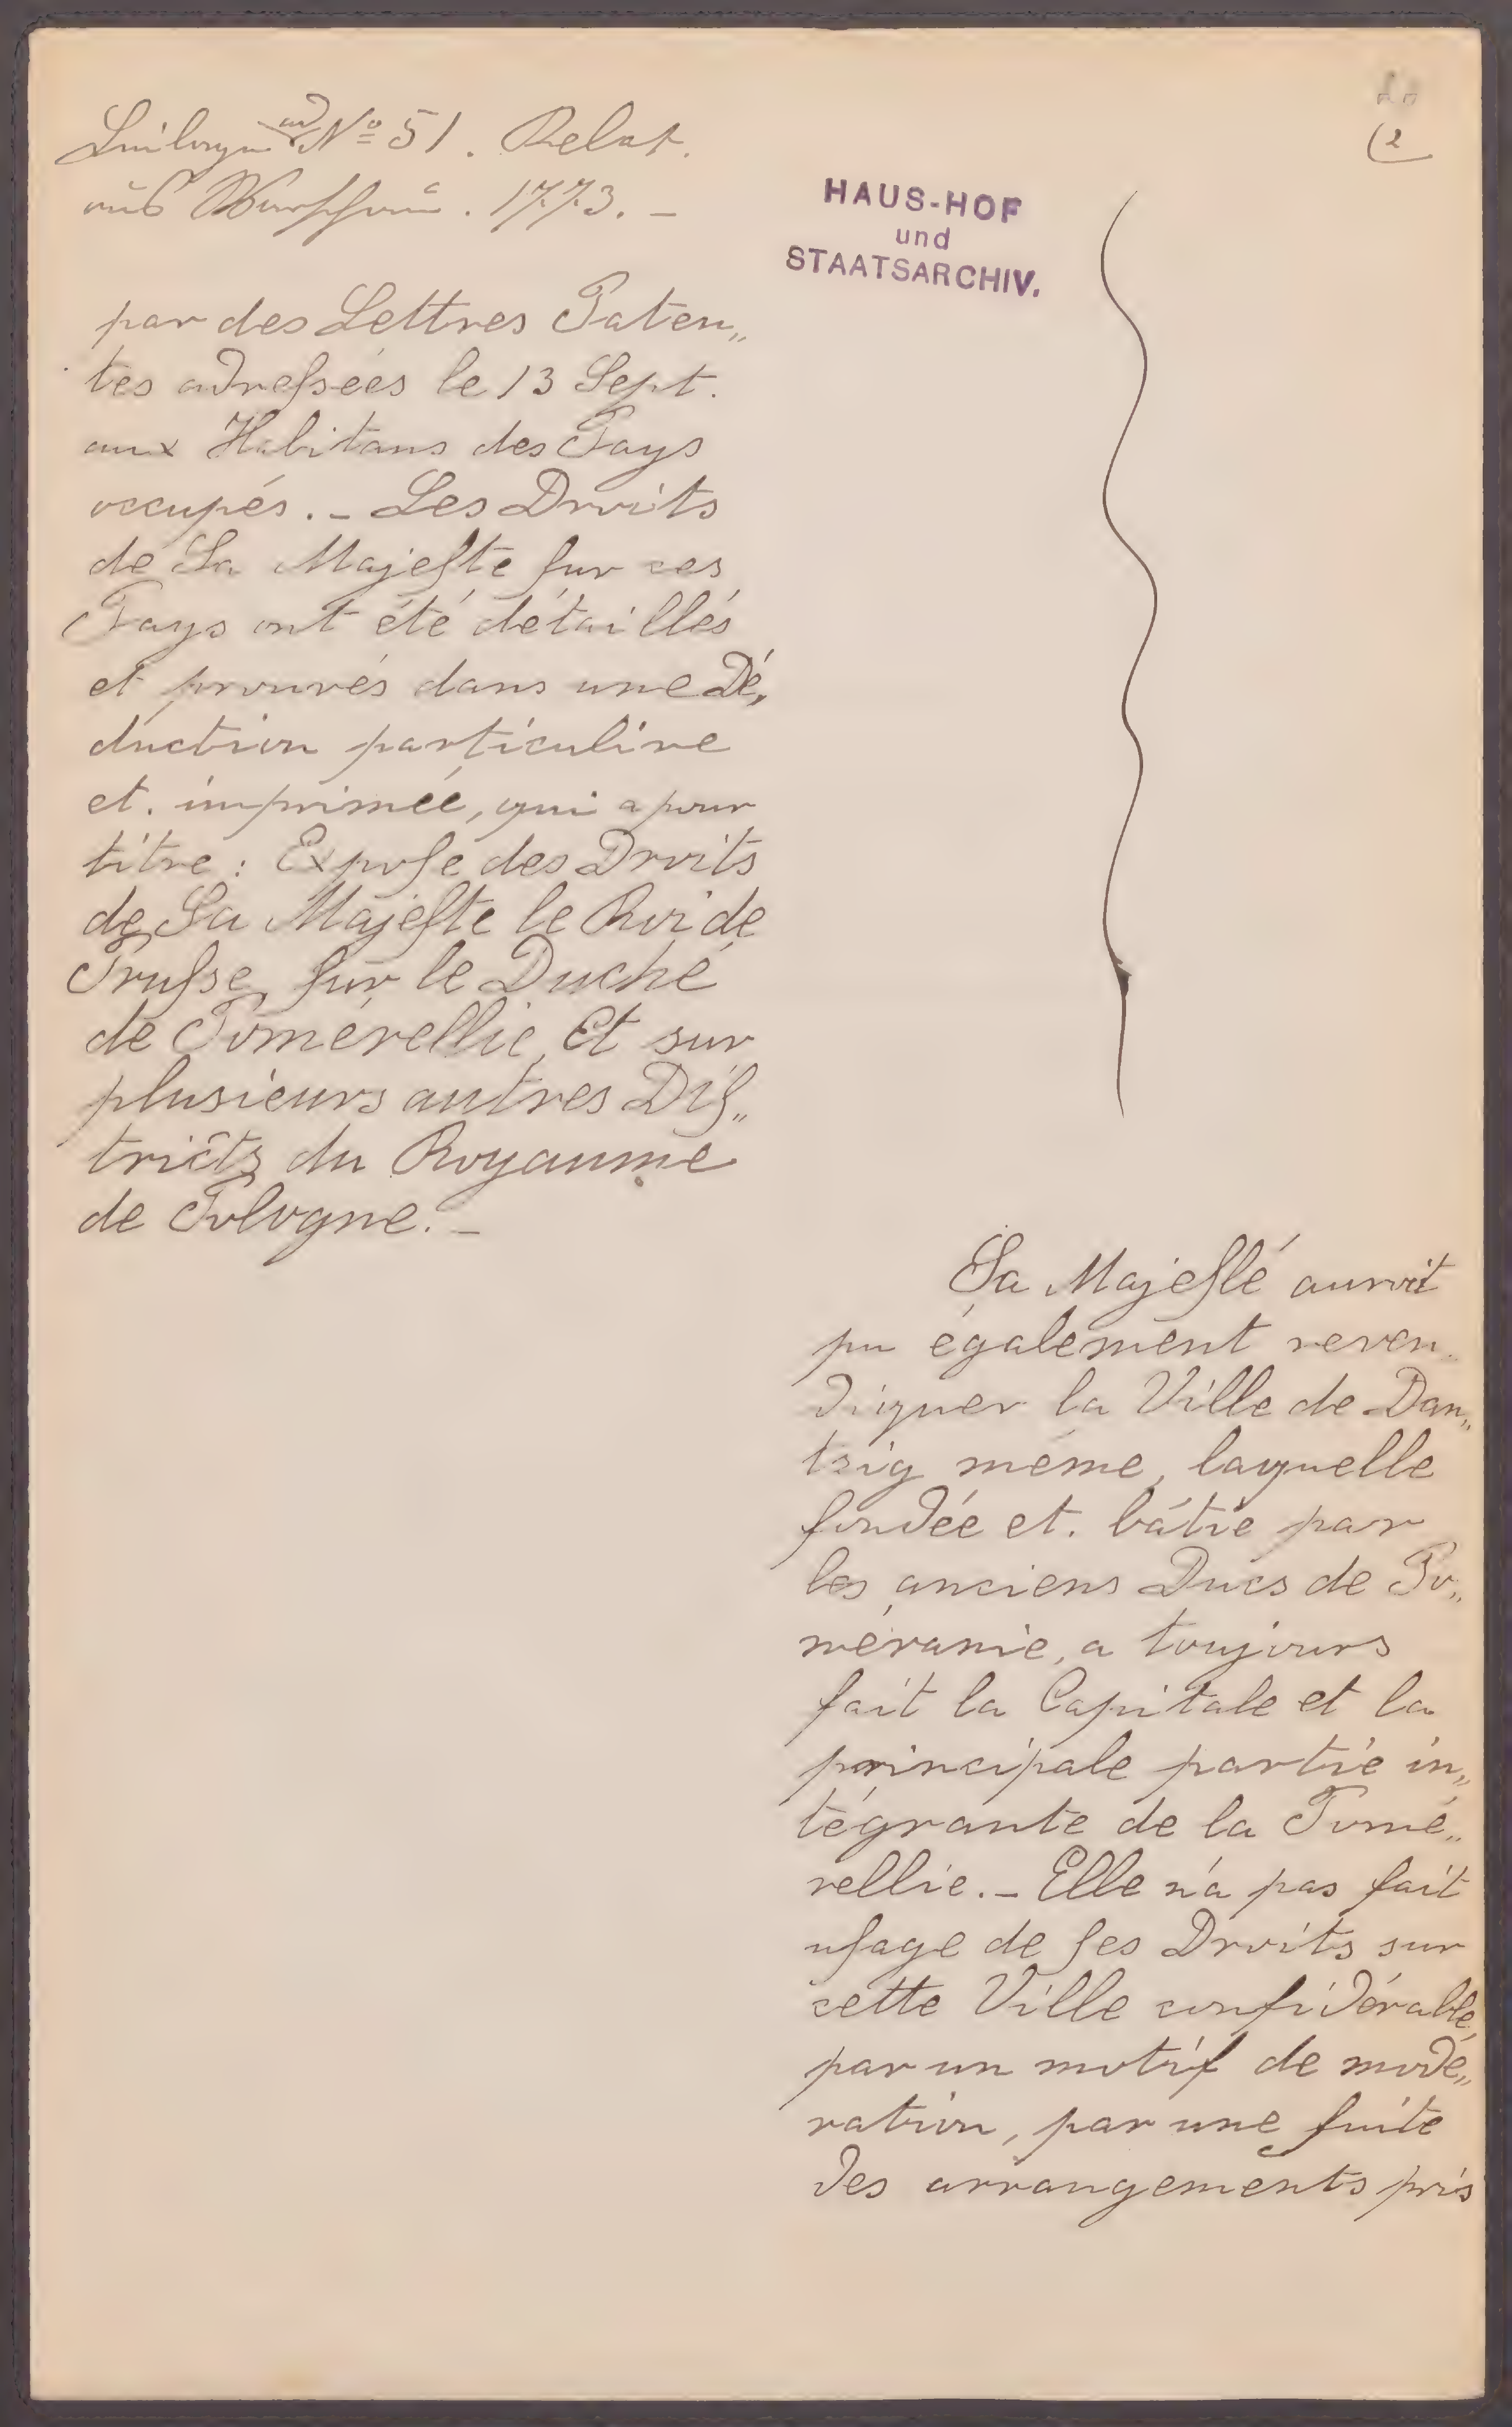 Beilagen ad Nº 51. Relat.
aus Warschau. 1773. –
(2
HAUS-HOF
und
STAATSARCHIV.
par des Lettres Paten„
tes adreſsées le 13 Sept.
aux Habitans des Pays
occupés. – Les Droits
de Sa Majeſte ſur ces
Pays ont été détaillés
et prouvés dans une Dé„
duction particulire
et. imprimée, qui a pour
titre: Expoſe des Droits
de Sa Majeſte le Roi de
Pruſse, ſur le Duché
de Pomérellie, Et sur
plusieurs autres Diſ„
tricts du Royaume
de Pologne. –
Sa Majeſté auroit
pu également reven„
diquer la Ville de Dan„
tzig même, laquelle
fondée et. bâtie par
les anciens Ducs de Po„
méranie, a toujours
fait la Capitale et la
principale partie in„
tégrante de la Pomé„
rellie. – Elle n'a pas fait
uſage de ſes Droits sur
cette Ville conſidérable,
par un motif de modé„
ration, par une ſuite
des arrangements pris